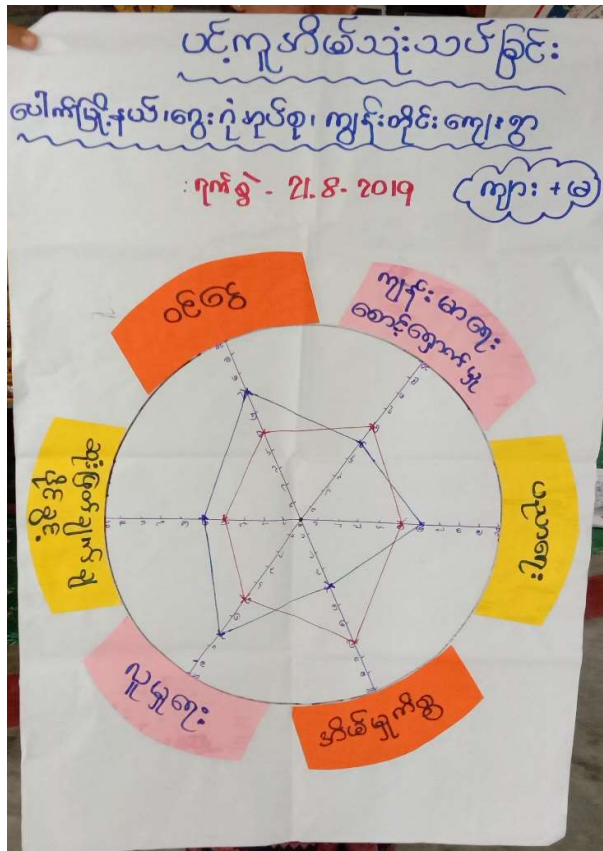 ပင့်ကူအိမ်သုံးသပ်ခြင်း
ပေါက်မြို့နယ်၊ ဂွေးဂုံအုပ်စု၊ ကျွန်းတိုင်းကျေးရွာ
ရက်စွဲ - 21.8.2019
ကျား + မ
ဝင်ငွေ
ကျန်းမာရေး
စောင့်ရှောက်မှု
ပညာရေး
အိမ်မှုကိစ္စ
လူမှုရေး
ဆုံးဖြတ်ချက်ချ
ပိုင်ခွင့်